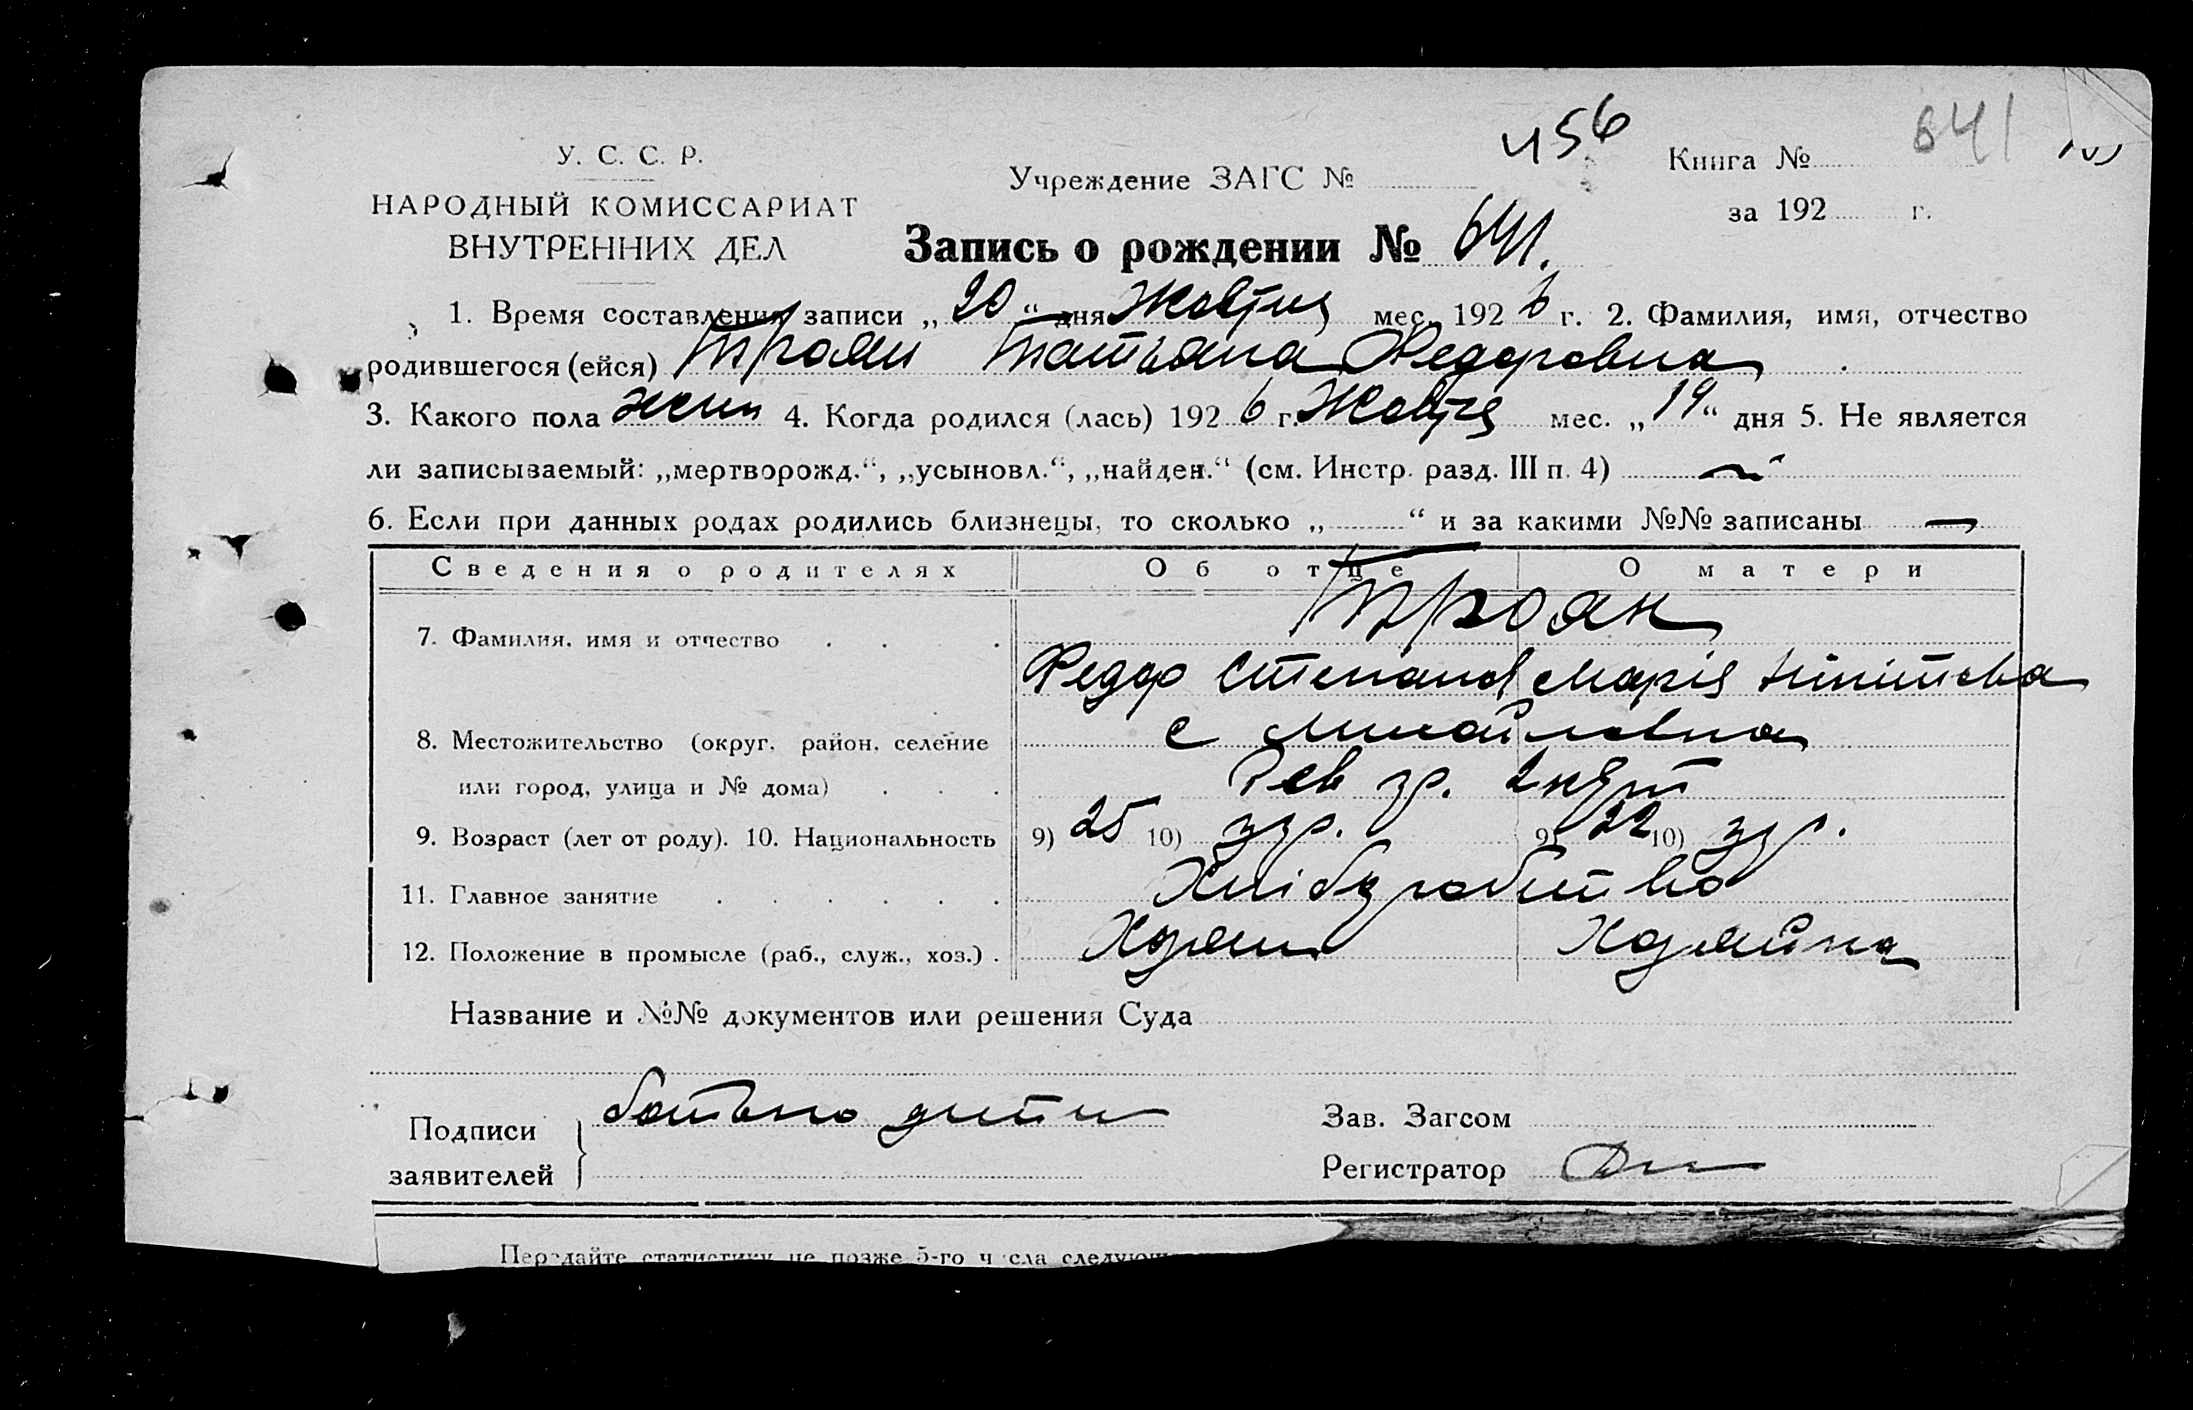 456
641
У. С. С. Р.
Учреждение ЗАГС №
Книга №
НАРОДНЫЙ КОМИССАРИАТ
за 192 г.
ВНУТРЕННИХ ДЕЛ
Запись о рождении № 641.
1. Время составления записи „20“ дня Жовтня мес. 1926 г. 2. Фамилия, имя, отчество
родившегося (ейся) Троян Татьяна Федоровна
3. Какого пола жин 4. Когда родился (лась) 1926 г. Жовтня мес. „19“ дня 5. Не является
ли записываемый: „мертворожд.“, „усыновл.“, „найден.“ (см. Инстр. разд. III п. 4) —
6. Если при данных родах родились близнецы, то сколько „ “ и за какими №№ записаны —
Сведения о родителях Об отце О матери
Троян
7. Фамилия, имя и отчество
Федор Степанов Марія Никитова
8. Местожительство (округ, район, селение
с Михайловка
или город, улица и № дома)
9. Возраст (лет от роду). 10. Национальность 9) 25 10) укр. 9) 22 10) укр.
11. Главное занятие Хлібробство
12. Положение в промысле (раб., служ., хоз.) Хозяин Хозяйка
Название и №№ документов или решения Суда
Подписи
заявителей
батько дити
Зав. Загсом
Регистратор
Передайте статистику не позже 5-го числа следующ